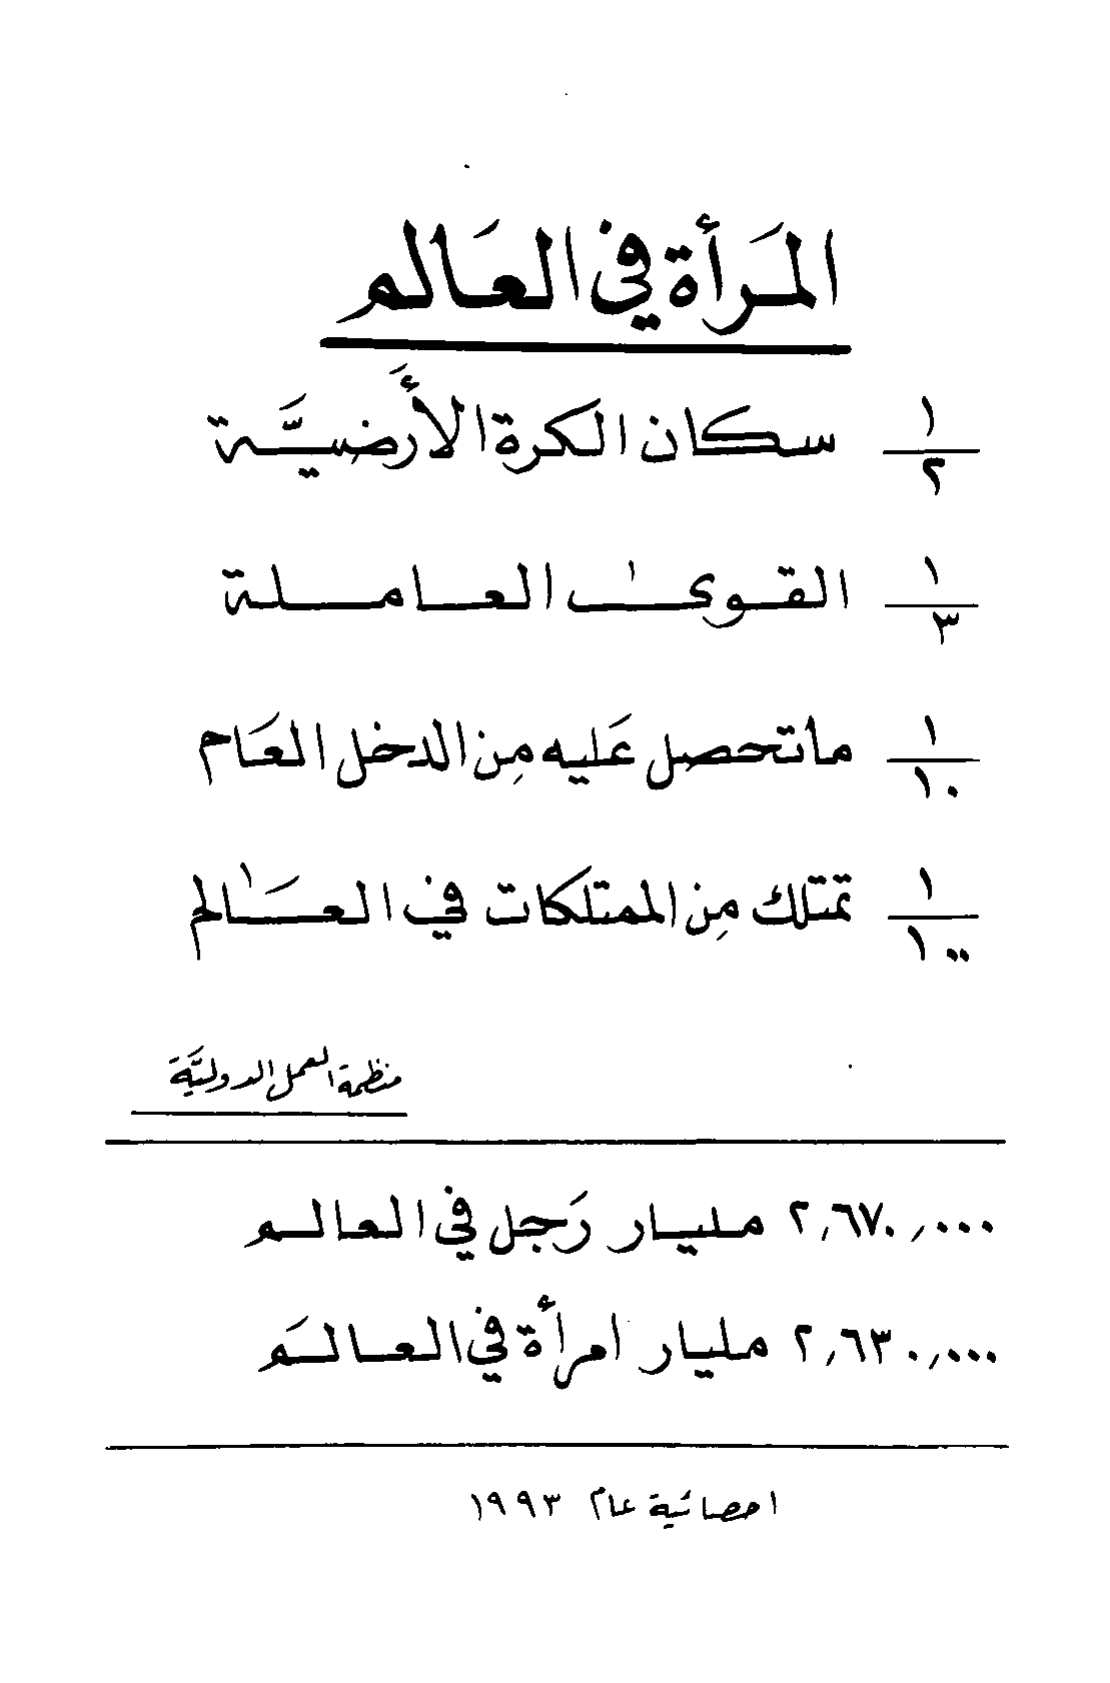 المَرأة في العَالم
١/٢ سكان الكرة الأَرضيَّة
١/٣ القوىٰ العاملة
١/١٠ ما تحصل عَليه مِن الدخل العَام
١/١٠٠ تمتلك مِن الممتلكات في العَالم
منظمة العمل الدوليَّة
٢,٦٧٠,٠٠٠ مليار رَجل في العالم
٢,٦٣٠,٠٠٠ مليار امرأة في العالَم
احصائية عام ١٩٩٣